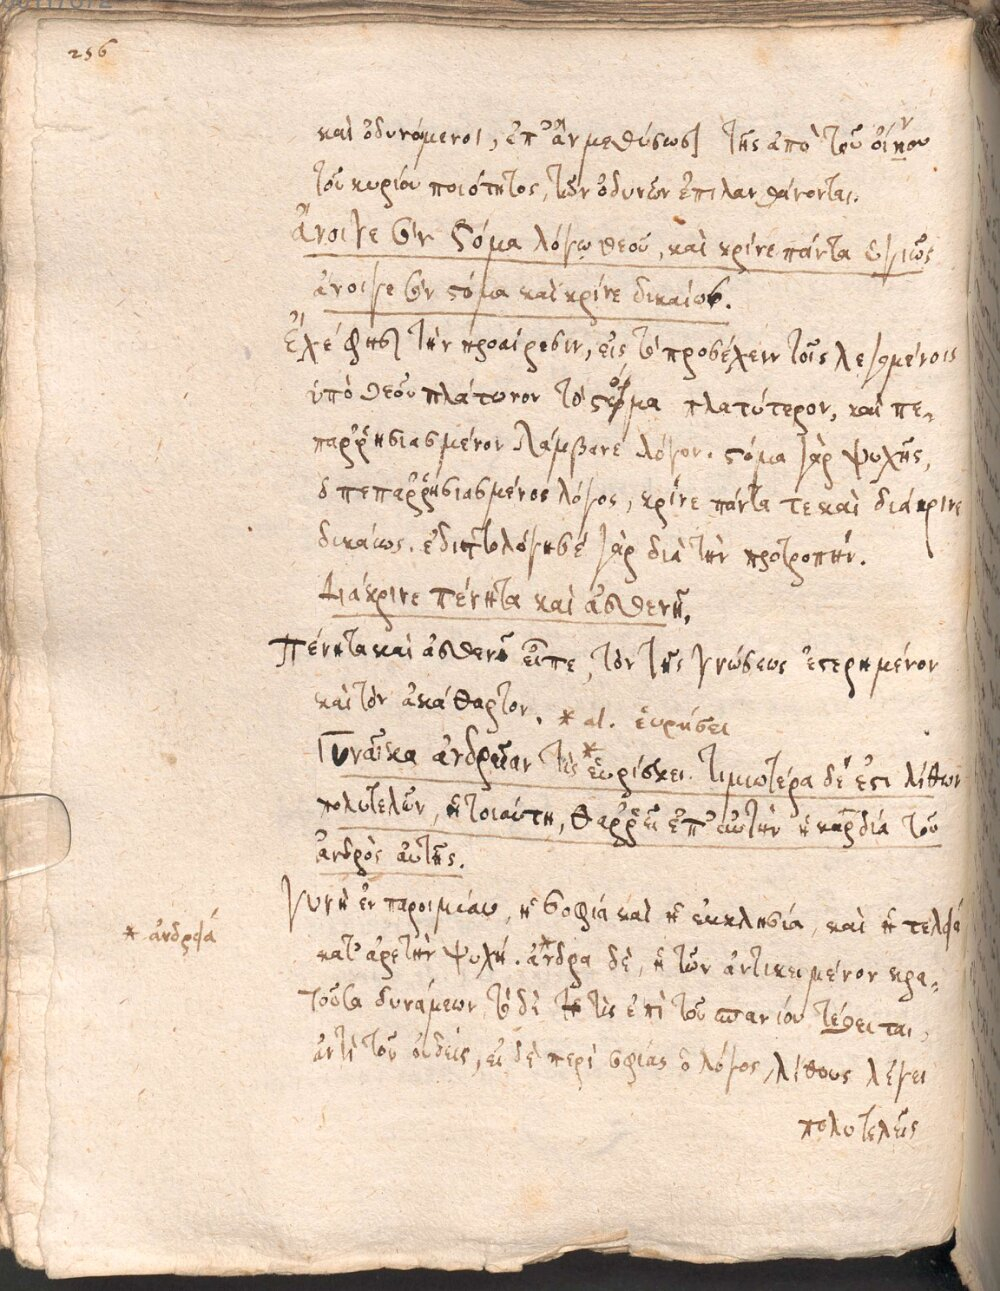 256
καὶ ὀδυνώμενοι, ἐπ' ἂν μεθύσωσι τῆς ἀπὸ τοῦ οἴκου
τοῦ κυρίου ποιότητος, τῶν ὀδυνῶν ἐπιλανθάνονται.
Ἄνοιγε σὸν στόμα λόγῳ θεοῦ, καὶ κρίνε πάντα ὑγιῶς
ἄνοιγε σὸν στόμα καὶ κρίνε δικαίως.
τὴν προαίρεσιν, εἰς τὸ προσέχειν τοῖς λεγομένοις
ὑπὸ θεοῦ πλάτυνον τὸ στόμα πλατύτερον, καὶ πε-
παρρησιασμένον λάμβανε λόγον. στόμα γὰρ ψυχῆς,
ὁ πεπαρρησιασμένος λόγος, κρίνε πάντα τε καὶ διάκρινε
δικαίως. γὰρ διὰ τὴν προτροπήν.
Διάκρινε πένητα καὶ ἀσθενῆ,
Πένητα καὶ ἀσθενῆ εἶπε, τὸν τῆς γνώσεως ἐστερημένον
καὶ τὸν ἀκάθαρτον. * al. εὑρήσει
Γυναῖκα ἀνδρείαν τίς * εὑρίσκει. τιμιωτέρα δέ ἐστι λίθων
πολυτελῶν, ἡ τοιαύτη, θαρρεῖ ἐπ' αὐτὴν ἡ καρδία τοῦ
ἀνδρὸς αὐτῆς.
γυνὴ ἐν παροιμίαις, ἡ σοφία καὶ ἡ ἐκκλησία, καὶ ἡ τελεία
* ἀνδρεία
κατ' ἀρετὴν ψυχή. * ἄνδρα δὲ, ἡ τῶν ἀντικειμένων κρα-
τοῦσα δυνάμεων, τὸ δὲ τίς ἐπὶ τοῦ σπανίου τέθειται,
ἀντὶ τοῦ οὐδεὶς, εἰ δὲ περὶ σοφίας ὁ λόγος, λίθους λέγει
πολυτελεῖς